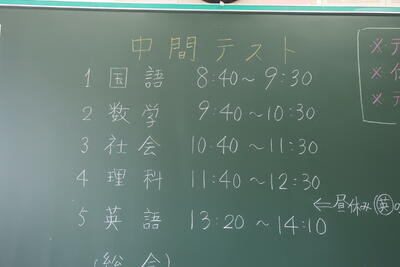 中間テスト
1 国語 8:40～9:30
2 数学 9:40～10:30
3 社会 10:40～11:30
4 理科 11:40～12:30
←昼休み 英の
5 英語 13:20～14:10
(総合)
×元
×
×元